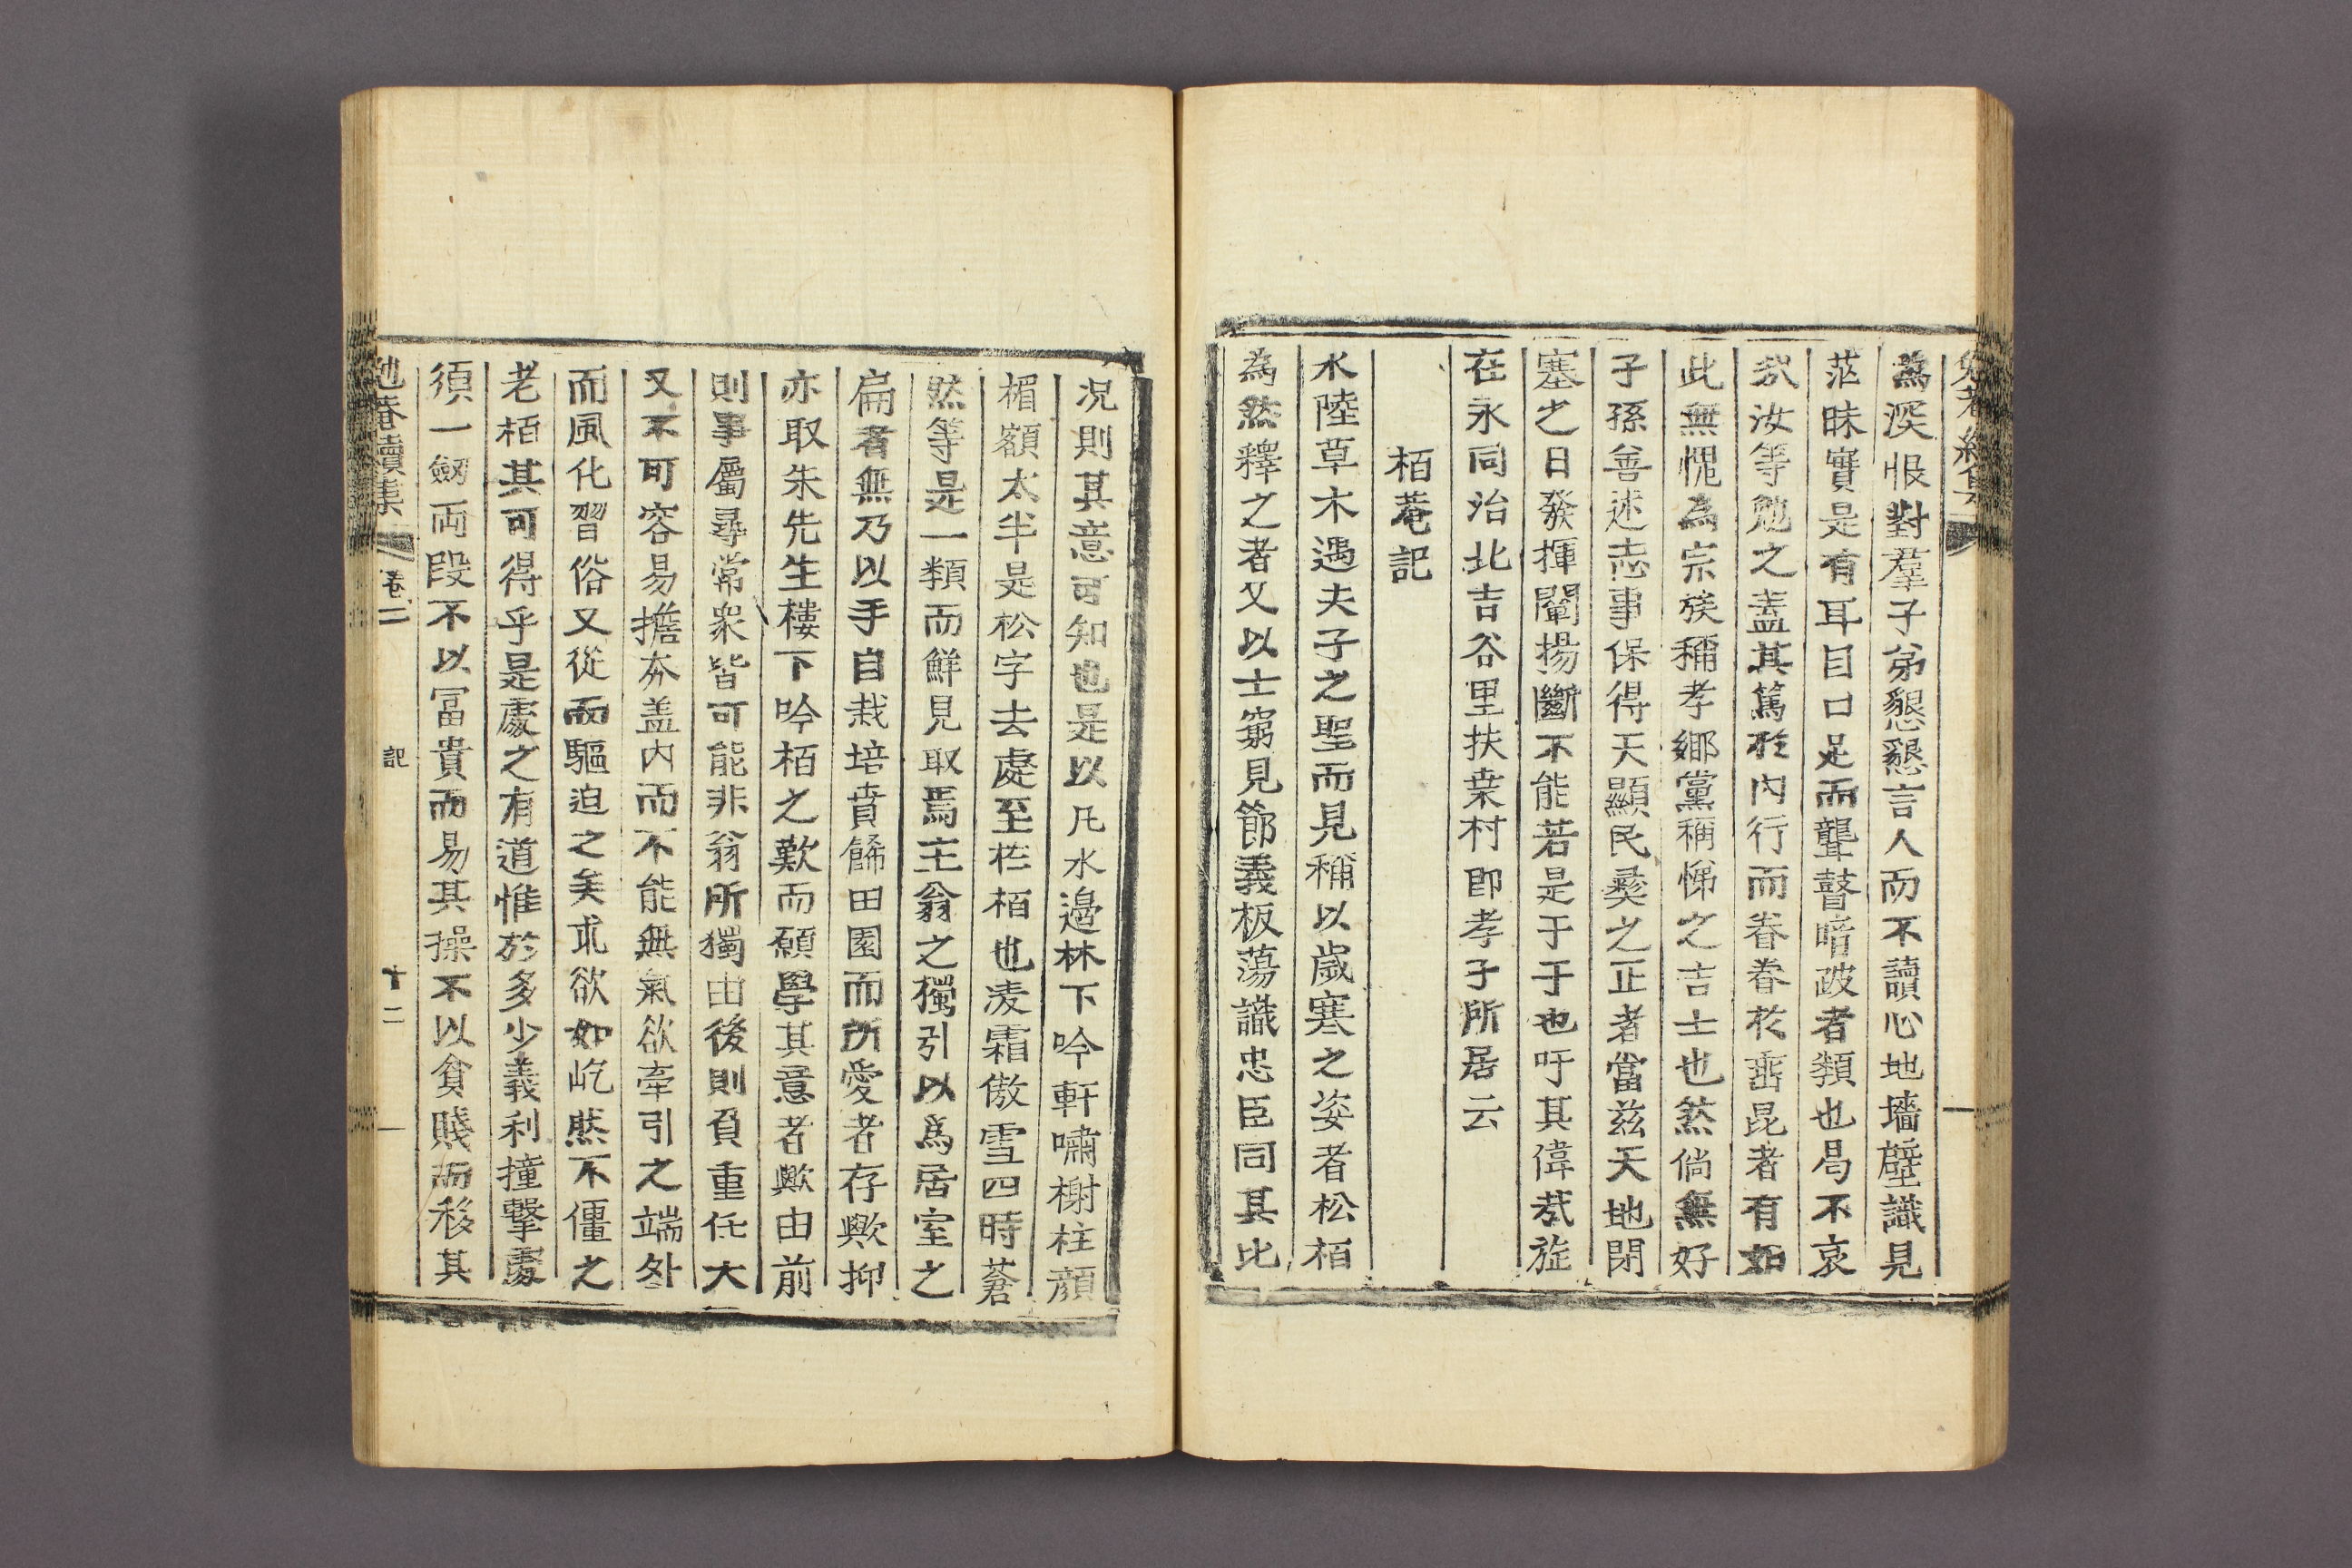 為深恨對羣子弟懇懇言人而不讀心地墻壁識見
茫昧實是有耳目口足而聾瞽喑跛者類也曷不哀
哉汝等勉之盖其篤於內行而眷眷於啬昆者有如
此無愧為宗族稱孝鄉黨稱悌之吉士也然倘無好
子孫善述志事保得天顯民彝之正者當兹天地閉
塞之日發揮闡揚斷不能若是于于也吁其偉哉旋
在永同治北吉谷里扶桒村即孝子所居云
栢菴記
水陸草木遇夫子之聖而見稱以歲寒之姿者松栢
為然釋之者又以士窮見節義板蕩識忠臣同其比
况則其意可知也是以凡水邊林下吟軒嘯榭柱顔
楣額太半是松字去處至於栢也凌霜傲雪四時蒼
然等是一類而鮮見取焉主翁之獨引以爲居室之
扁者無乃以手自栽培賁餙田園而所愛者存歟抑
亦取朱先生樓下吟栢之歎而願學其意者歟由前
則事屬尋常衆皆可能非翁所獨由後則負重任大
又不可容易擔夯盖内而不能無氣欲牽引之端外
而風化習俗又從而驅迫之矣求欲如屹然不僵之
老栢其可得乎是處之有道惟於多少義利撞擊處
須一劒両段不以冨貴而易其操不以貧賤而移其
勉菴續集 卷二 記 十二